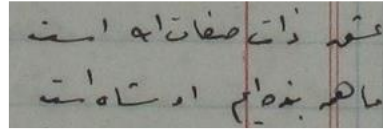 عشق ذات صفات اله است
ما همه بنده ایم او شاه است